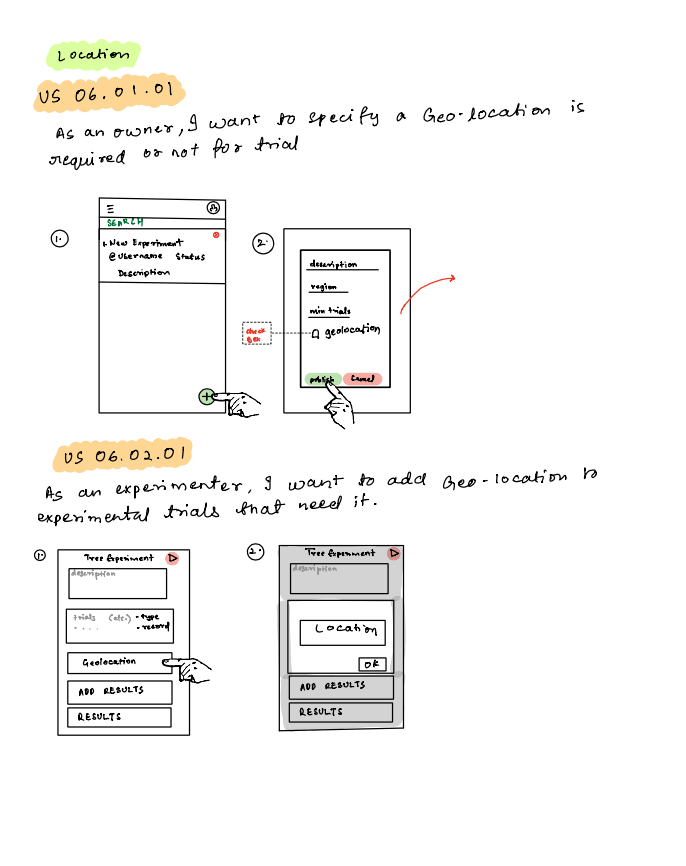 Location
US 06.01.01
As an owner, I want to specify a Geo-location is
required or not for trial
1.
SEARCH
New Experiment
@username Status
Description
+
2.
description
region
min trials
geolocation
check
box
publish
Cancel
US 06.02.01
As an experimenter, I want to add Geo-location to
experimental trials that need it.
1.
Tree Experiment
description
trials (etc.) - type
- record
Geolocation
ADD RESULTS
RESULTS
2.
Tree Experiment
description
Location
OK
ADD RESULTS
RESULTS